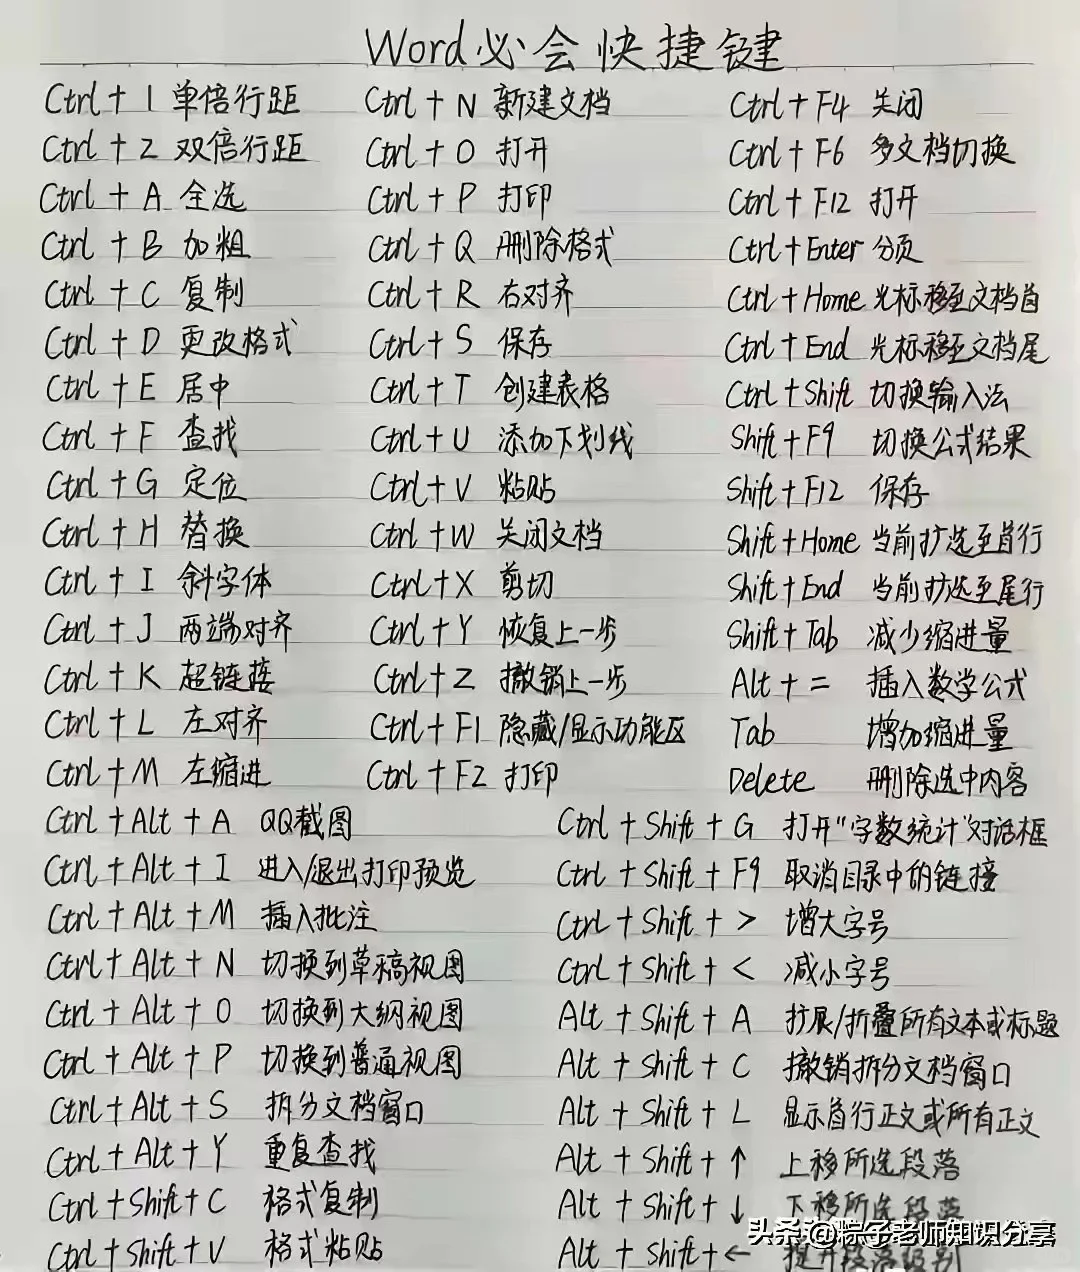 Word必会快捷键
Ctrl + 1 单倍行距
Ctrl + 2 双倍行距
Ctrl + A 全选
Ctrl + B 加粗
Ctrl + C 复制
Ctrl + D 更改格式
Ctrl + E 居中
Ctrl + F 查找
Ctrl + G 定位
Ctrl + H 替换
Ctrl + I 斜字体
Ctrl + J 两端对齐
Ctrl + K 超链接
Ctrl + L 左对齐
Ctrl + M 左缩进
Ctrl + N 新建文档
Ctrl + O 打开
Ctrl + P 打印
Ctrl + Q 删除格式
Ctrl + R 右对齐
Ctrl + S 保存
Ctrl + T 创建表格
Ctrl + U 添加下划线
Ctrl + V 粘贴
Ctrl + W 关闭文档
Ctrl + X 剪切
Ctrl + Y 恢复上一步
Ctrl + Z 撤销上一步
Ctrl + F1 隐藏/显示功能区
Ctrl + F2 打印
Ctrl + F4 关闭
Ctrl + F6 多文档切换
Ctrl + F12 打开
Ctrl + Enter 分页
Ctrl + Home 光标移至文档首
Ctrl + End 光标移至文档尾
Ctrl + Shift 切换输入法
Shift + F9 切换公式结果
Shift + F12 保存
Shift + Home 当前扩选至首行
Shift + End 当前扩选至尾行
Shift + Tab 减少缩进量
Alt + = 插入数学公式
Tab 增加缩进量
Delete 删除选中内容
Ctrl + Alt + A QQ截图
Ctrl + Alt + I 进入/退出打印预览
Ctrl + Alt + M 插入批注
Ctrl + Alt + N 切换到草稿视图
Ctrl + Alt + O 切换到大纲视图
Ctrl + Alt + P 切换到普通视图
Ctrl + Alt + S 拆分文档窗口
Ctrl + Alt + Y 重复查找
Ctrl + Shift + C 格式复制
Ctrl + Shift + V 格式粘贴
Ctrl + Shift + G 打开“字数统计”对话框
Ctrl + Shift + F9 取消目录中的链接
Ctrl + Shift + > 增大字号
Ctrl + Shift + < 减小字号
Alt + Shift + A 扩展/折叠所有文本或标题
Alt + Shift + C 撤销拆分文档窗口
Alt + Shift + L 显示首行正文或所有正文
Alt + Shift + ↑ 上移所选段落
Alt + Shift + ↓ 下移所选段落
Alt + Shift + ← 提升段落级别
头条@粽子老师知识分享